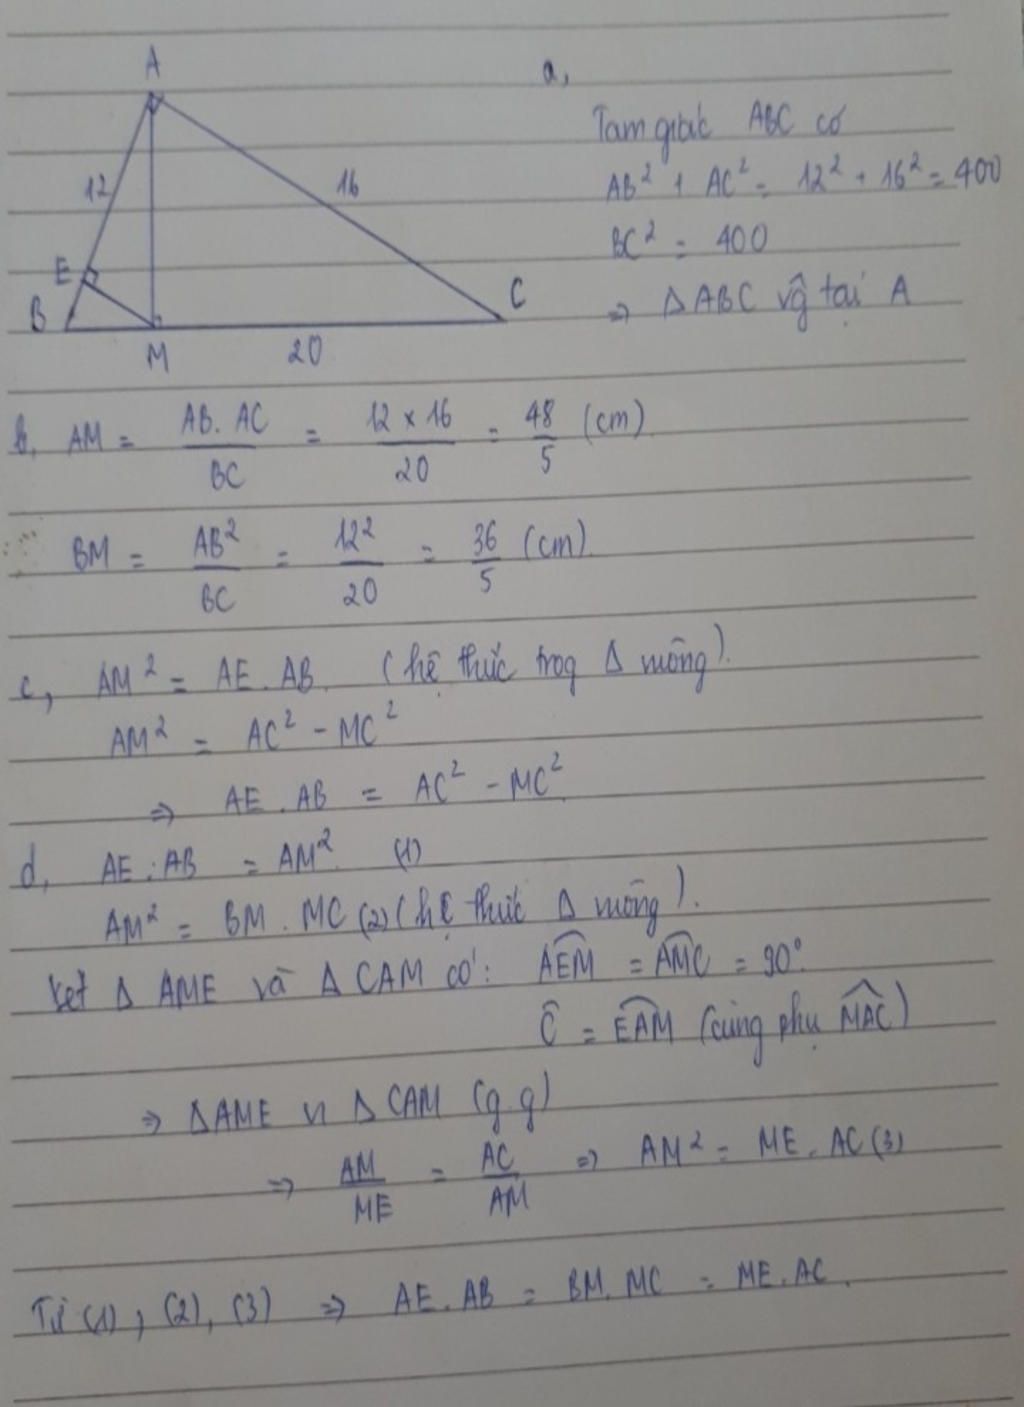 A
a,
Tam giác ABC có
12
16
AB² + AC² = 12² + 16² = 400
E
BC² = 400
B
C
⇒ Δ ABC vg tại A
M
20
b, AM = AB. AC / BC = 12 × 16 / 20 = 48/5 (cm)
BM = AB² / BC = 12² / 20 = 36/5 (cm).
c, AM² = AE. AB. (hệ thức trog Δ vuông).
AM² = AC² - MC²
⇒ AE. AB = AC² - MC²
d, AE . AB = AM². (1)
AM² = BM . MC (2) (hệ thức Δ vuông).
Xét Δ AME và Δ CAM có: AEM = AMC = 90°.
Ĉ = EAM (cùng phụ MAC)
⇒ Δ AME ∽ Δ CAM (g.g)
⇒ AM/ME = AC/AM ⇒ AM² = ME. AC (3)
Từ (1), (2), (3) ⇒ AE. AB = BM. MC = ME. AC.